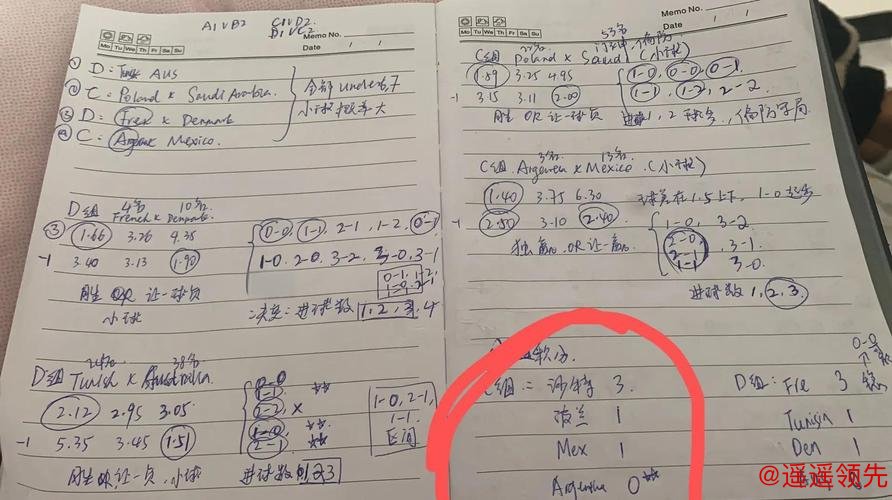 A1VB2 C1VD2.
B1VC2
Memo No.
Mo Tu We Th Fr Sa Su
Date / /
① D: Tunis AUS
② C: Poland x Saudi Arabia.
③ D: Frex x Denmark
④ C: Argentina Mexico.
全部 under 6,7
小球概率大
D组 4名 10名
French x Denmark.
③ 1.66 3.26 4.35
-1 3.40 3.13 1.90
胜 OR 让一球负
小球
0-0, 1-1, 2-1, 1-2, 0-1
1-0, 2-0, 3-2, 3-0, 3-1
进球数 1, 2, 3, 4
38名
D组 Tunish x Australia.
2.12 2.95 3.05
-1 5.35 3.45 1.51
胜 OR 让一负, 小球
0-0
1-1
2-2 x
1-0 **
2-1 **
进球数 0 1 2 3
1-0, 2-1,
1-1
区间
Memo No.
Mo Tu We Th Fr Sa Su
Date / /
53名
C组 Poland x Saudi (小球)
1.59 3.25 4.95
-1 3.15 3.11 2.00
胜 OR 让一球负
1-0, 0-0, 0-1
1-1, 1-2, 2-2
进球 1, 2 球
3名 13名
C组 Argentina x Mexico. (小球)
1.40 3.75 6.30
球差在1.5上下, 1-0起步
-1 2.50 3-10 2.40
独赢 OR 让一
1-0, 3-2
2-0, 3-1
2-1
1-1 3-0.
进球数 1, 2, 3.
积分
C组: 沙特 3.
波兰 1
Mex 1
Argentina 0**
0-0
D组: Fre 3
Tunisia 1
Den 1
@遥遥领先